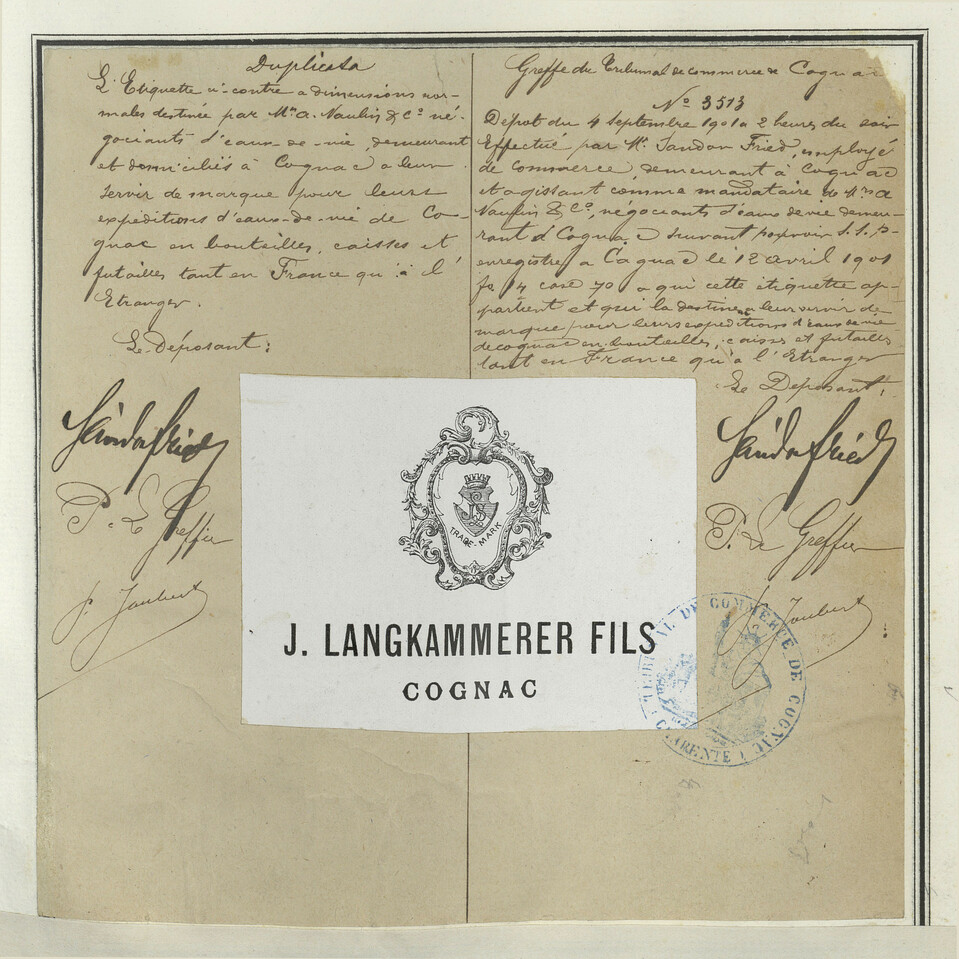 Duplicata
L'Etiquette ci-contre a dimensions nor-
males destinée par Mrs A. Naulin & Co né-
gociants d'eaux-de-vie, demeurant
et domiciliés à Cognac a leur
servir de marque pour leurs
expéditions d'eaux-de-vie de Co-
gnac en bouteilles, caisses et
futailles tant en France qu'à l'
Etranger.
Le Déposant:
Sándor Fried
P. Le Greffier
J. Joubert
Greffe du Tribunal de commerce de Cognac
No 3513
Dépot du 4 Septembre 1901 a 2 heures du soir
Effectué par Mr. Sandor Fried, employé
de commerce, demeurant à Cognac
et agissant comme mandataire de Mrs A
Naulin & Co, négociants d'eaux de vie demeu-
rant à Cognac suivant pouvoir S.S.P.
enregistré a Cognac le 12 avril 1901
fo 14 case 70 a qui cette étiquette ap-
partient et qui la destinent a leur servir de
marque pour leurs expéditions d'eaux de vie
de cognac en bouteilles, caisses et futailles
tant en France qu'à l'Etranger
Le Déposant,
Sándor Fried
P. Le Greffier
J. Joubert
JLS
TRADE-MARK
J. LANGKAMMERER FILS
COGNAC
TRIBUNAL DE COMMERCE DE COGNAC
(CHARENTE)